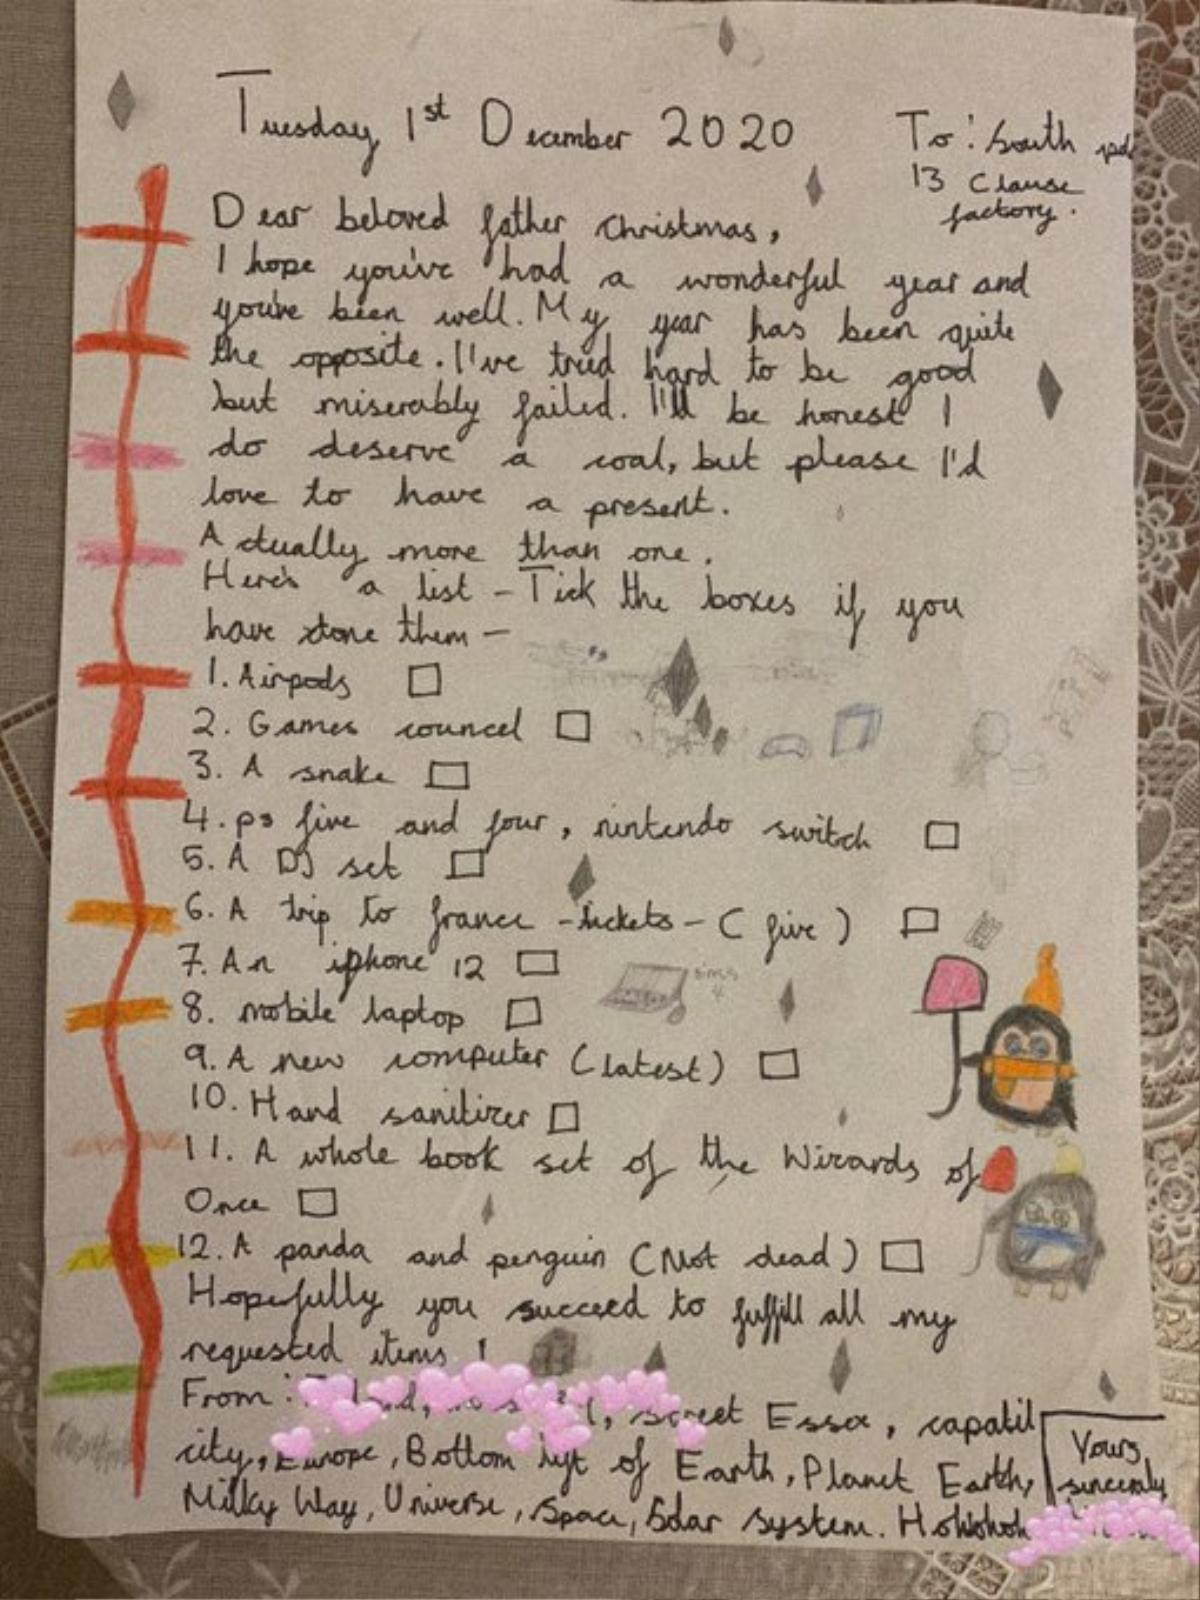 Tuesday 1st December 2020
To: South
13 Clause
factory.
Dear beloved father christmas,
I hope you've had a wonderful year and
you've been well. My year has been quite
the opposite. I've tried hard to be good
but miserably failed. I'll be honest I
do deserve a coal, but please I'd
love to have a present.
Actually more than one.
Here's a list - Tick the boxes if you
have done them -
1. Airpods
2. Games councel
3. A snake
4. ps five and four, nintendo switch
5. A DJ set
6. A trip to france - tickets - (five)
7. An iphone 12
8. mobile laptop
sims
4
9. A new computer (latest)
10. Hand sanitizer
11. A whole book set of the Wizards of
Once
12. A panda and penguin (Not dead)
Hopefully you succeed to fulfill all my
requested items!
From: street Essex, capatil
city, Europe, Bottom of Earth, Planet Earth,
Milky Way, Universe, Space, Solar system. Hohohoh
Yours
sincerely